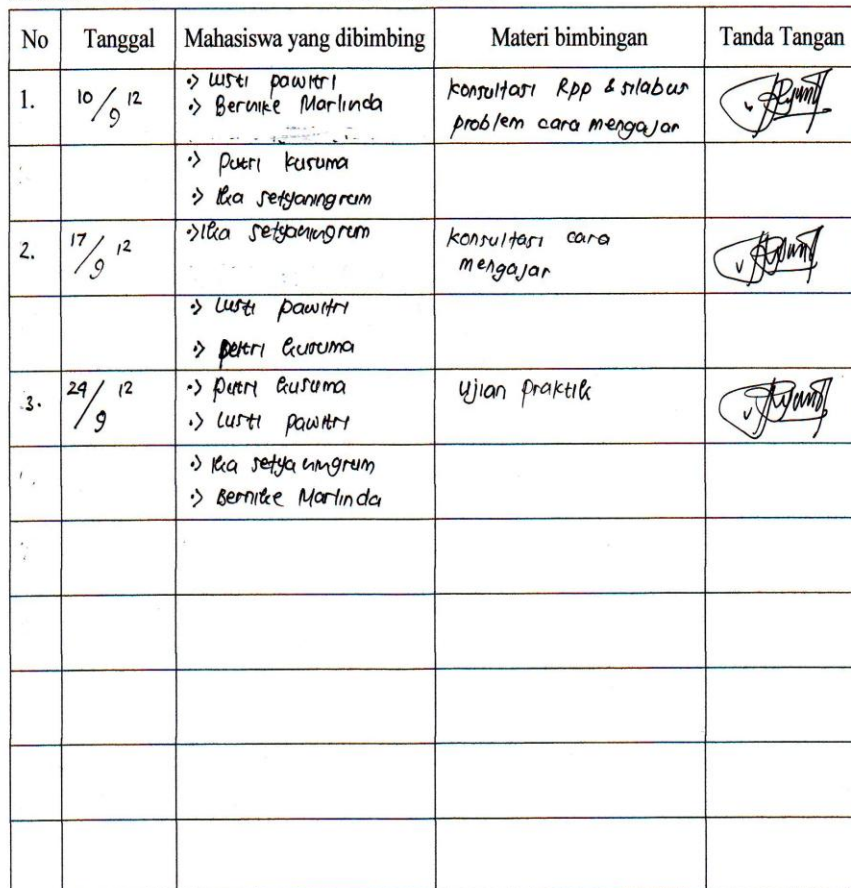 No Tanggal Mahasiswa yang dibimbing Materi bimbingan Tanda Tangan
1. 10/9 12 Lusti pawitri konsultasi Rpp & silabus
Bernike Marlinda problem cara mengajar
putri kusuma
Ika setyaningrum
2. 17/9 12 Ika setyaningrum konsultasi cara
mengajar
Lusti pawitri
putri kusuma
3. 24/9 12 putri kusuma ujian praktik
Lusti pawitri
Ika setyaningrum
Bernike Marlinda